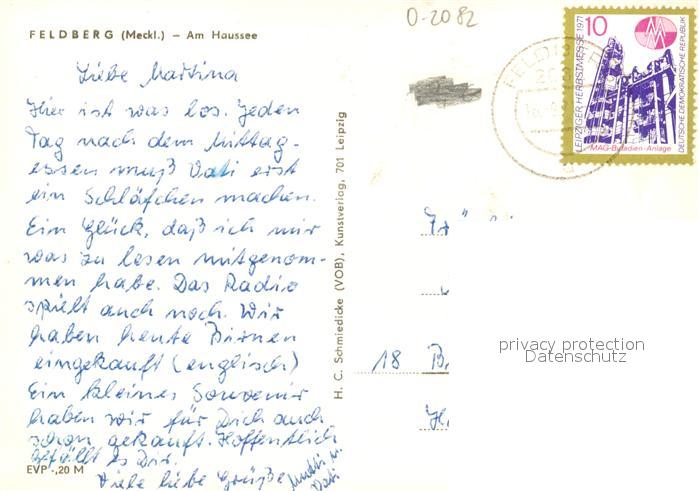 O-2082
FELDBERG (Meckl.) – Am Haussee
Liebe Martina
Hier ist was los. Jeden
Tag nach dem Mittag-
essen muß Vati erst
ein Schläfchen machen.
Ein Glück, daß ich mir
was zu lesen mitgenom-
men habe. Das Radio
spielt auch noch. Wir
haben heute Birnen
eingekauft (englisch)
Ein kleines Souvenir
haben wir für Dich auch
schon gekauft. Hoffentlich
gefällt es Dir.
Viele liebe Grüße
Mutti u.
Vati
EVP -,20 M
H. C. Schmiedicke (VOB), Kunstverlag, 701 Leipzig
FELDBERG
10
LEIPZIGER HERBSTMESSE 1971
DEUTSCHE DEMOKRATISCHE REPUBLIK
MAG-Butadien-Anlage
18 B
privacy protection
Datenschutz